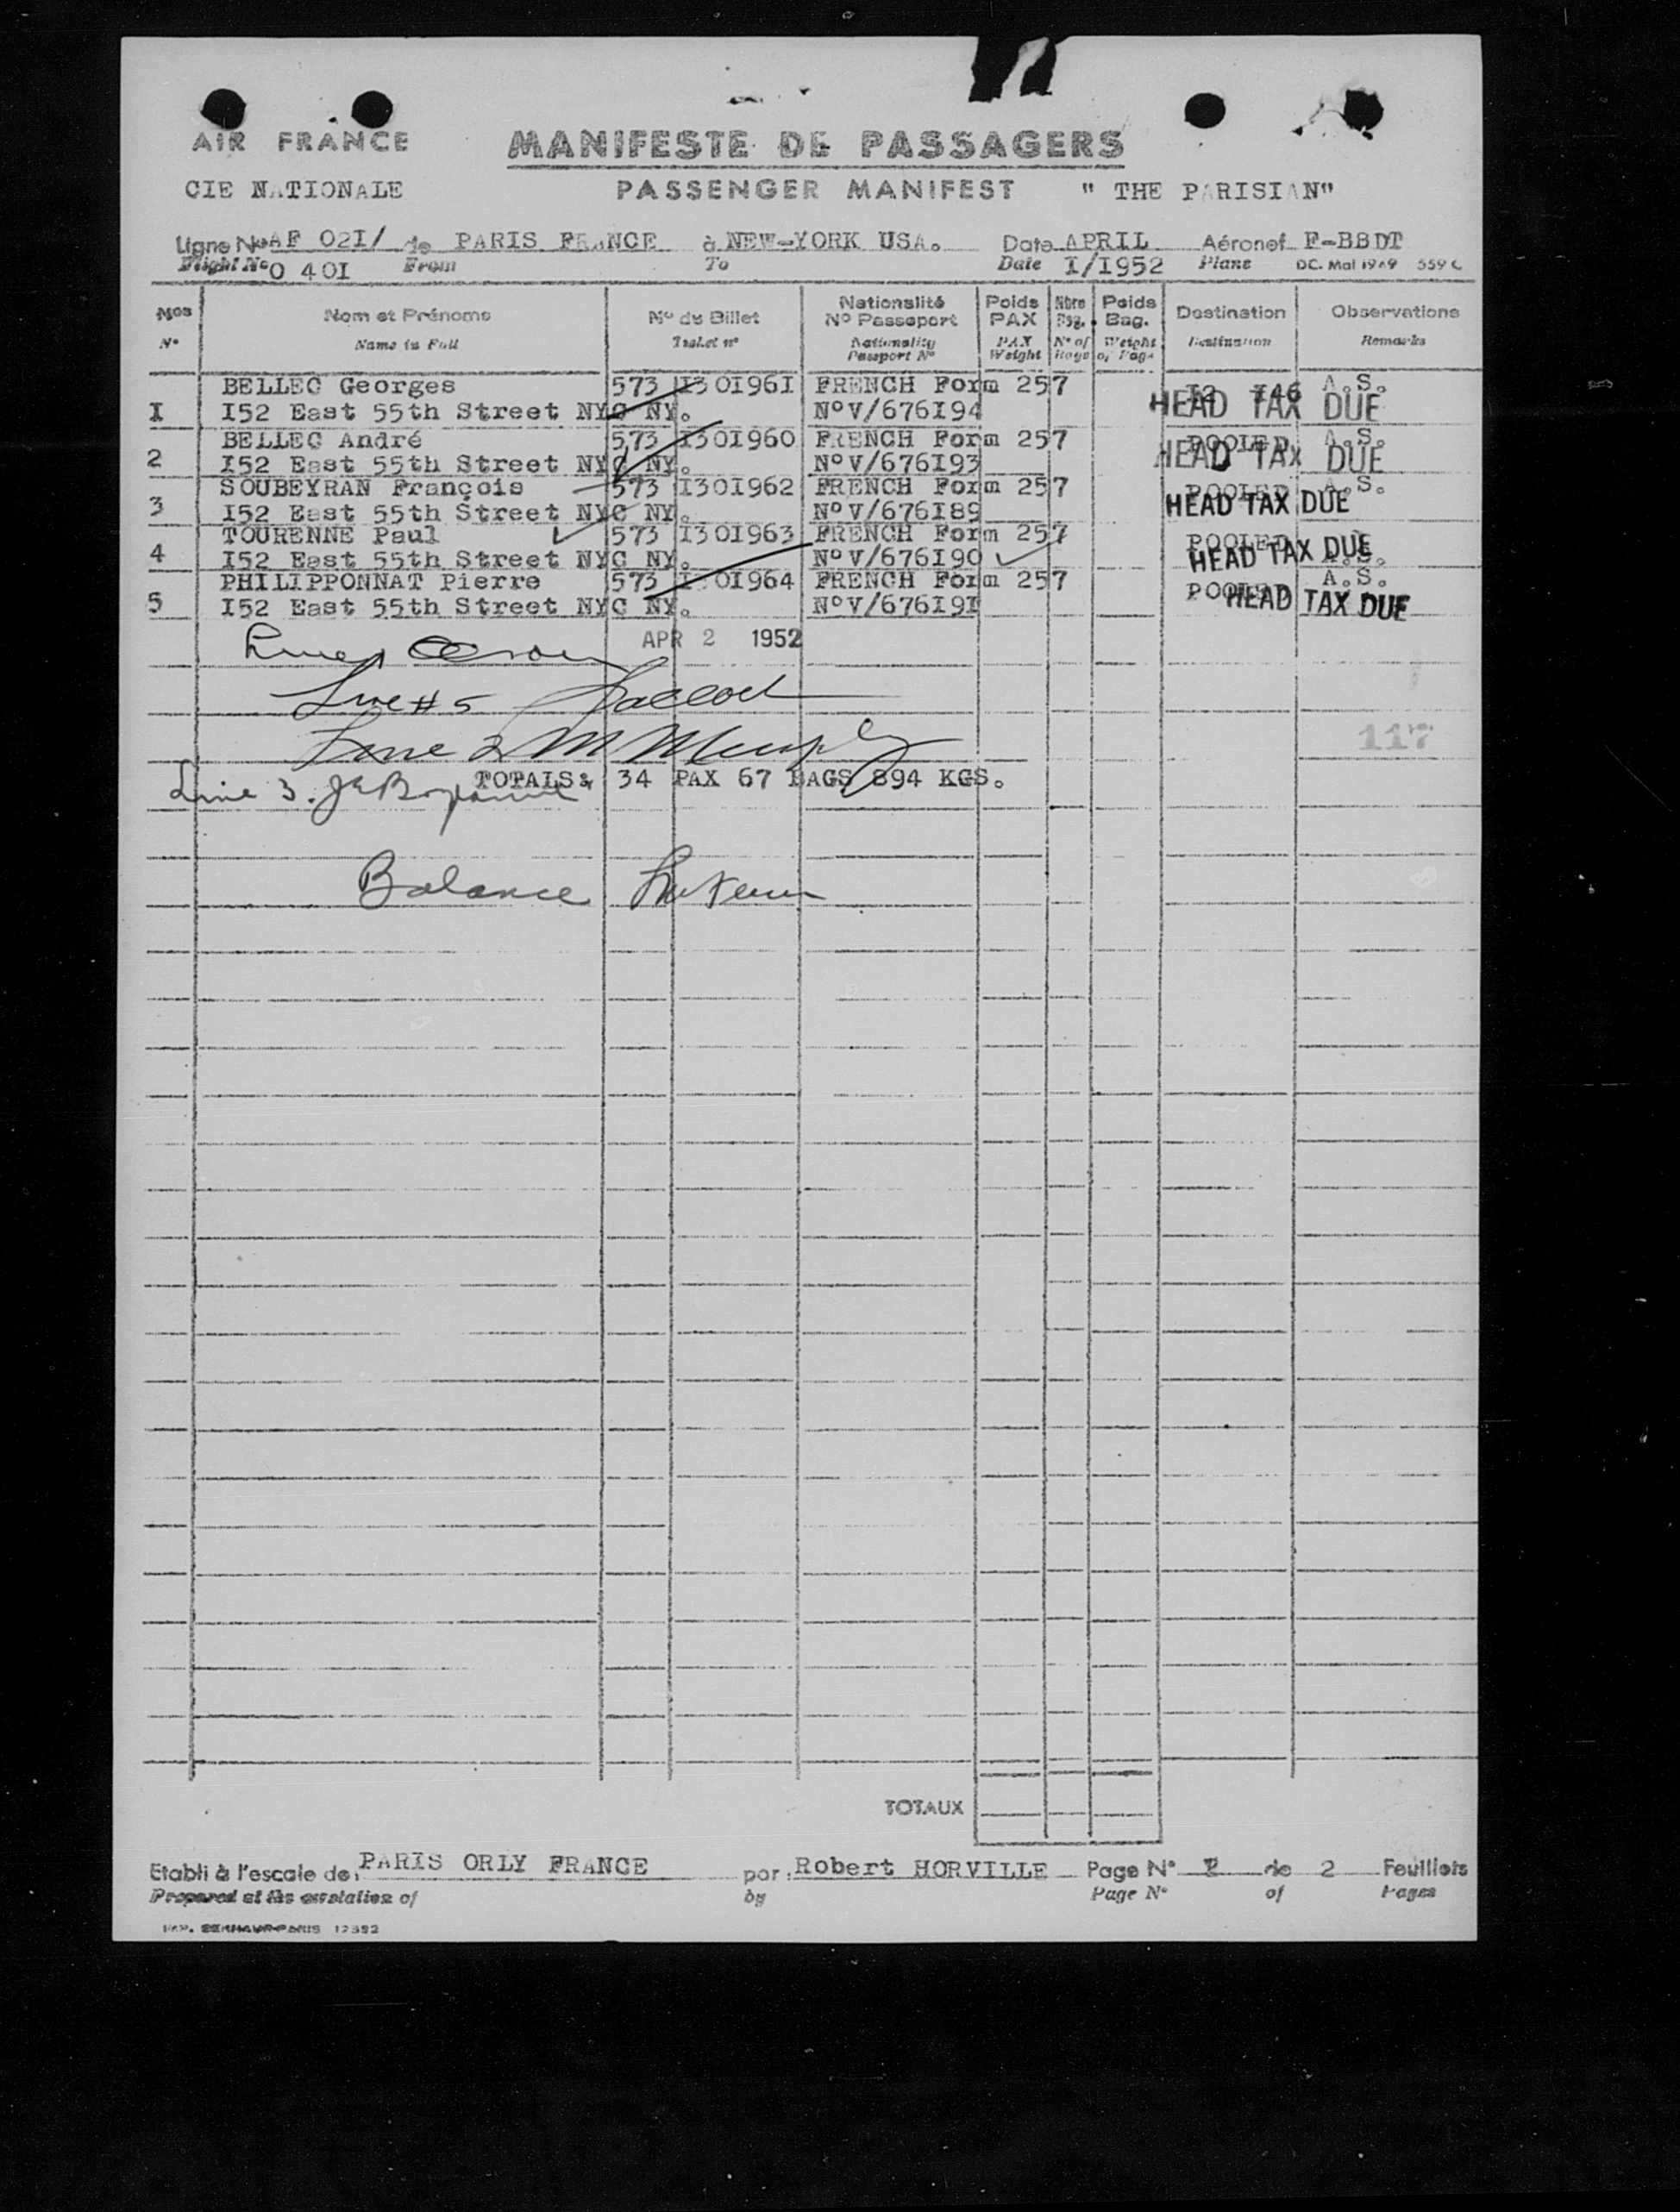 AIR FRANCE MANIFESTE DE PASSAGERS
CIE NATIONALE PASSENGER MANIFEST " THE PARISIAN"
Ligne No AF 02I/ de PARIS FRANCE à NEW-YORK USA. Date APRIL Aéronef F-BBDT
Flight No O 40I From To Date I/I952 Plane DC. Mai 1949 559 C
Nos Nom et Prénoms No du Billet Nationalité No Passeport Poids PAX Nbre Bag. Poids Bag. Destination Observations
No Name in Full Ticket no Nationality Passport No PAX Weight No of Bags Weight of Bags Destination Remarks
BELLEC Georges 573 I30I96I FRENCH Form 257 I2 I46 A.S.
I I52 East 55th Street NYC NY. NoV/676I94 HEAD TAX DUE
BELLEC André 573 I30I960 FRENCH Form 257 POOLED A.S.
2 I52 East 55th Street NYC NY. NoV/676I93 HEAD TAX DUE
SOUBEYRAN François 573 I30I962 FRENCH Form 257 POOLED A.S.
3 I52 East 55th Street NYC NY. NoV/676I89 HEAD TAX DUE
TOURENNE Paul 573 I30I963 FRENCH Form 257 POOLED A.S.
4 I52 East 55th Street NYC NY. NoV/676I90 HEAD TAX DUE
PHILIPPONNAT Pierre 573 I30I964 FRENCH Form 257 POOLED A.S.
5 I52 East 55th Street NYC NY. NoV/676I9I HEAD TAX DUE
APR 2 1952
Line #5
Line 2 M Murphy
117
TOTALS: 34 PAX 67 BAGS 894 KGS.
Line 3.
Balance
TOTAUX
Etabli à l'escale de: PARIS ORLY FRANCE par: Robert HORVILLE Page No 2 de 2 Feuillets
Prepared at the by Page No of Pages